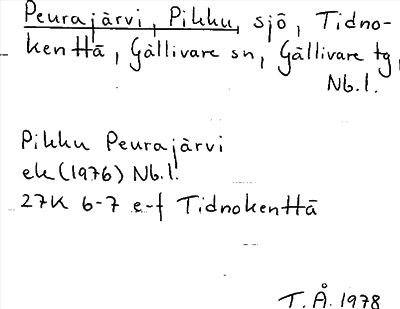 Peurajärvi, Pikku, sjö, Tidno-
kenttä, Gällivare sn, Gällivare tg,
Nb.l.
Pikku Peurajärvi
ek (1976) Nb.l.
27K 6-7 e-f Tidnokenttä
T.Å. 1978